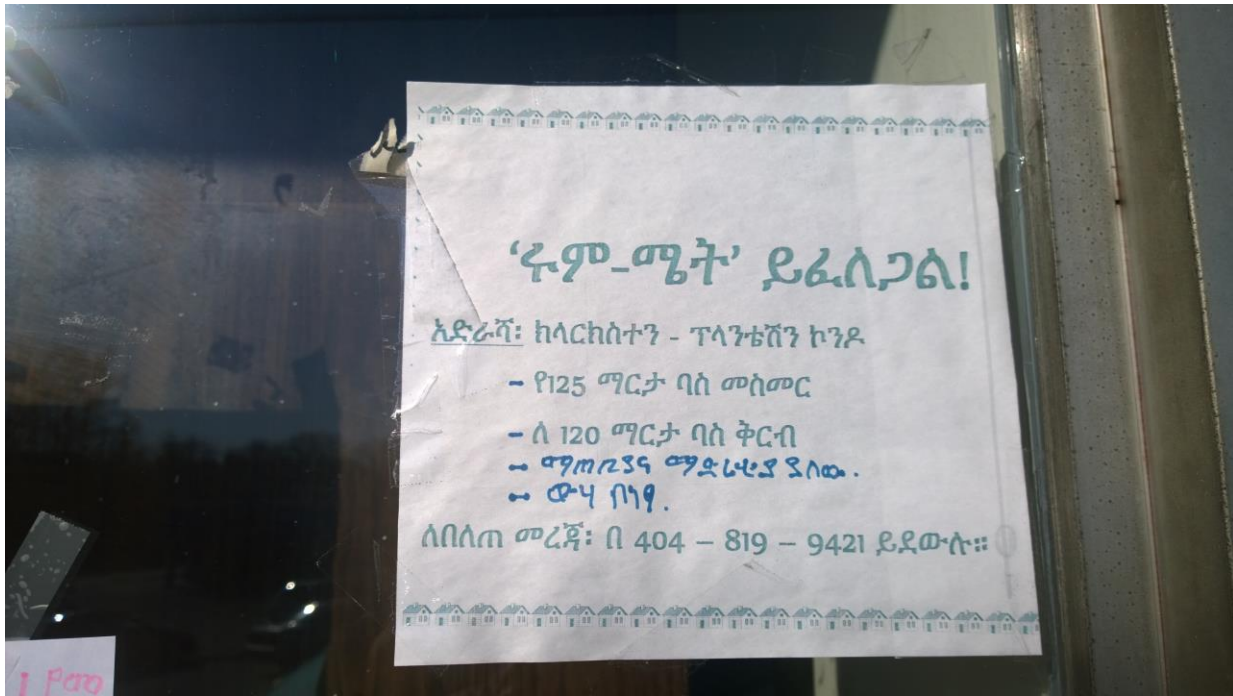 ‘ሩም-ሜት’ ይፈለጋል!
አድራሻ፡ ክላርክስተን - ፕላንቴሽን ኮንዶ
- የ125 ማርታ ባስ መስመር
- ለ 120 ማርታ ባስ ቅርብ
- ማጠቢያና ማድረቂያ ያለው.
- ውሃ በነፃ.
ለበለጠ መረጃ፡ በ 404 – 819 – 9421 ይደውሉ።